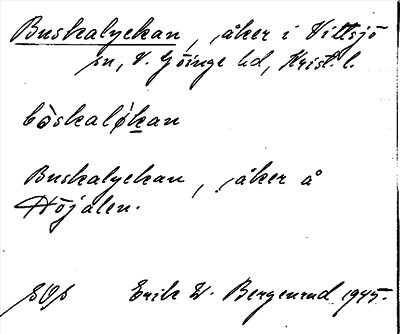 Buskalyckan, åker i Vittsjö
sn, V. Göinge hd, Krist. l.
bòskaløkan
Buskalyckan, åker å
Höjalen.
Erik W. Bergenrud 1945.